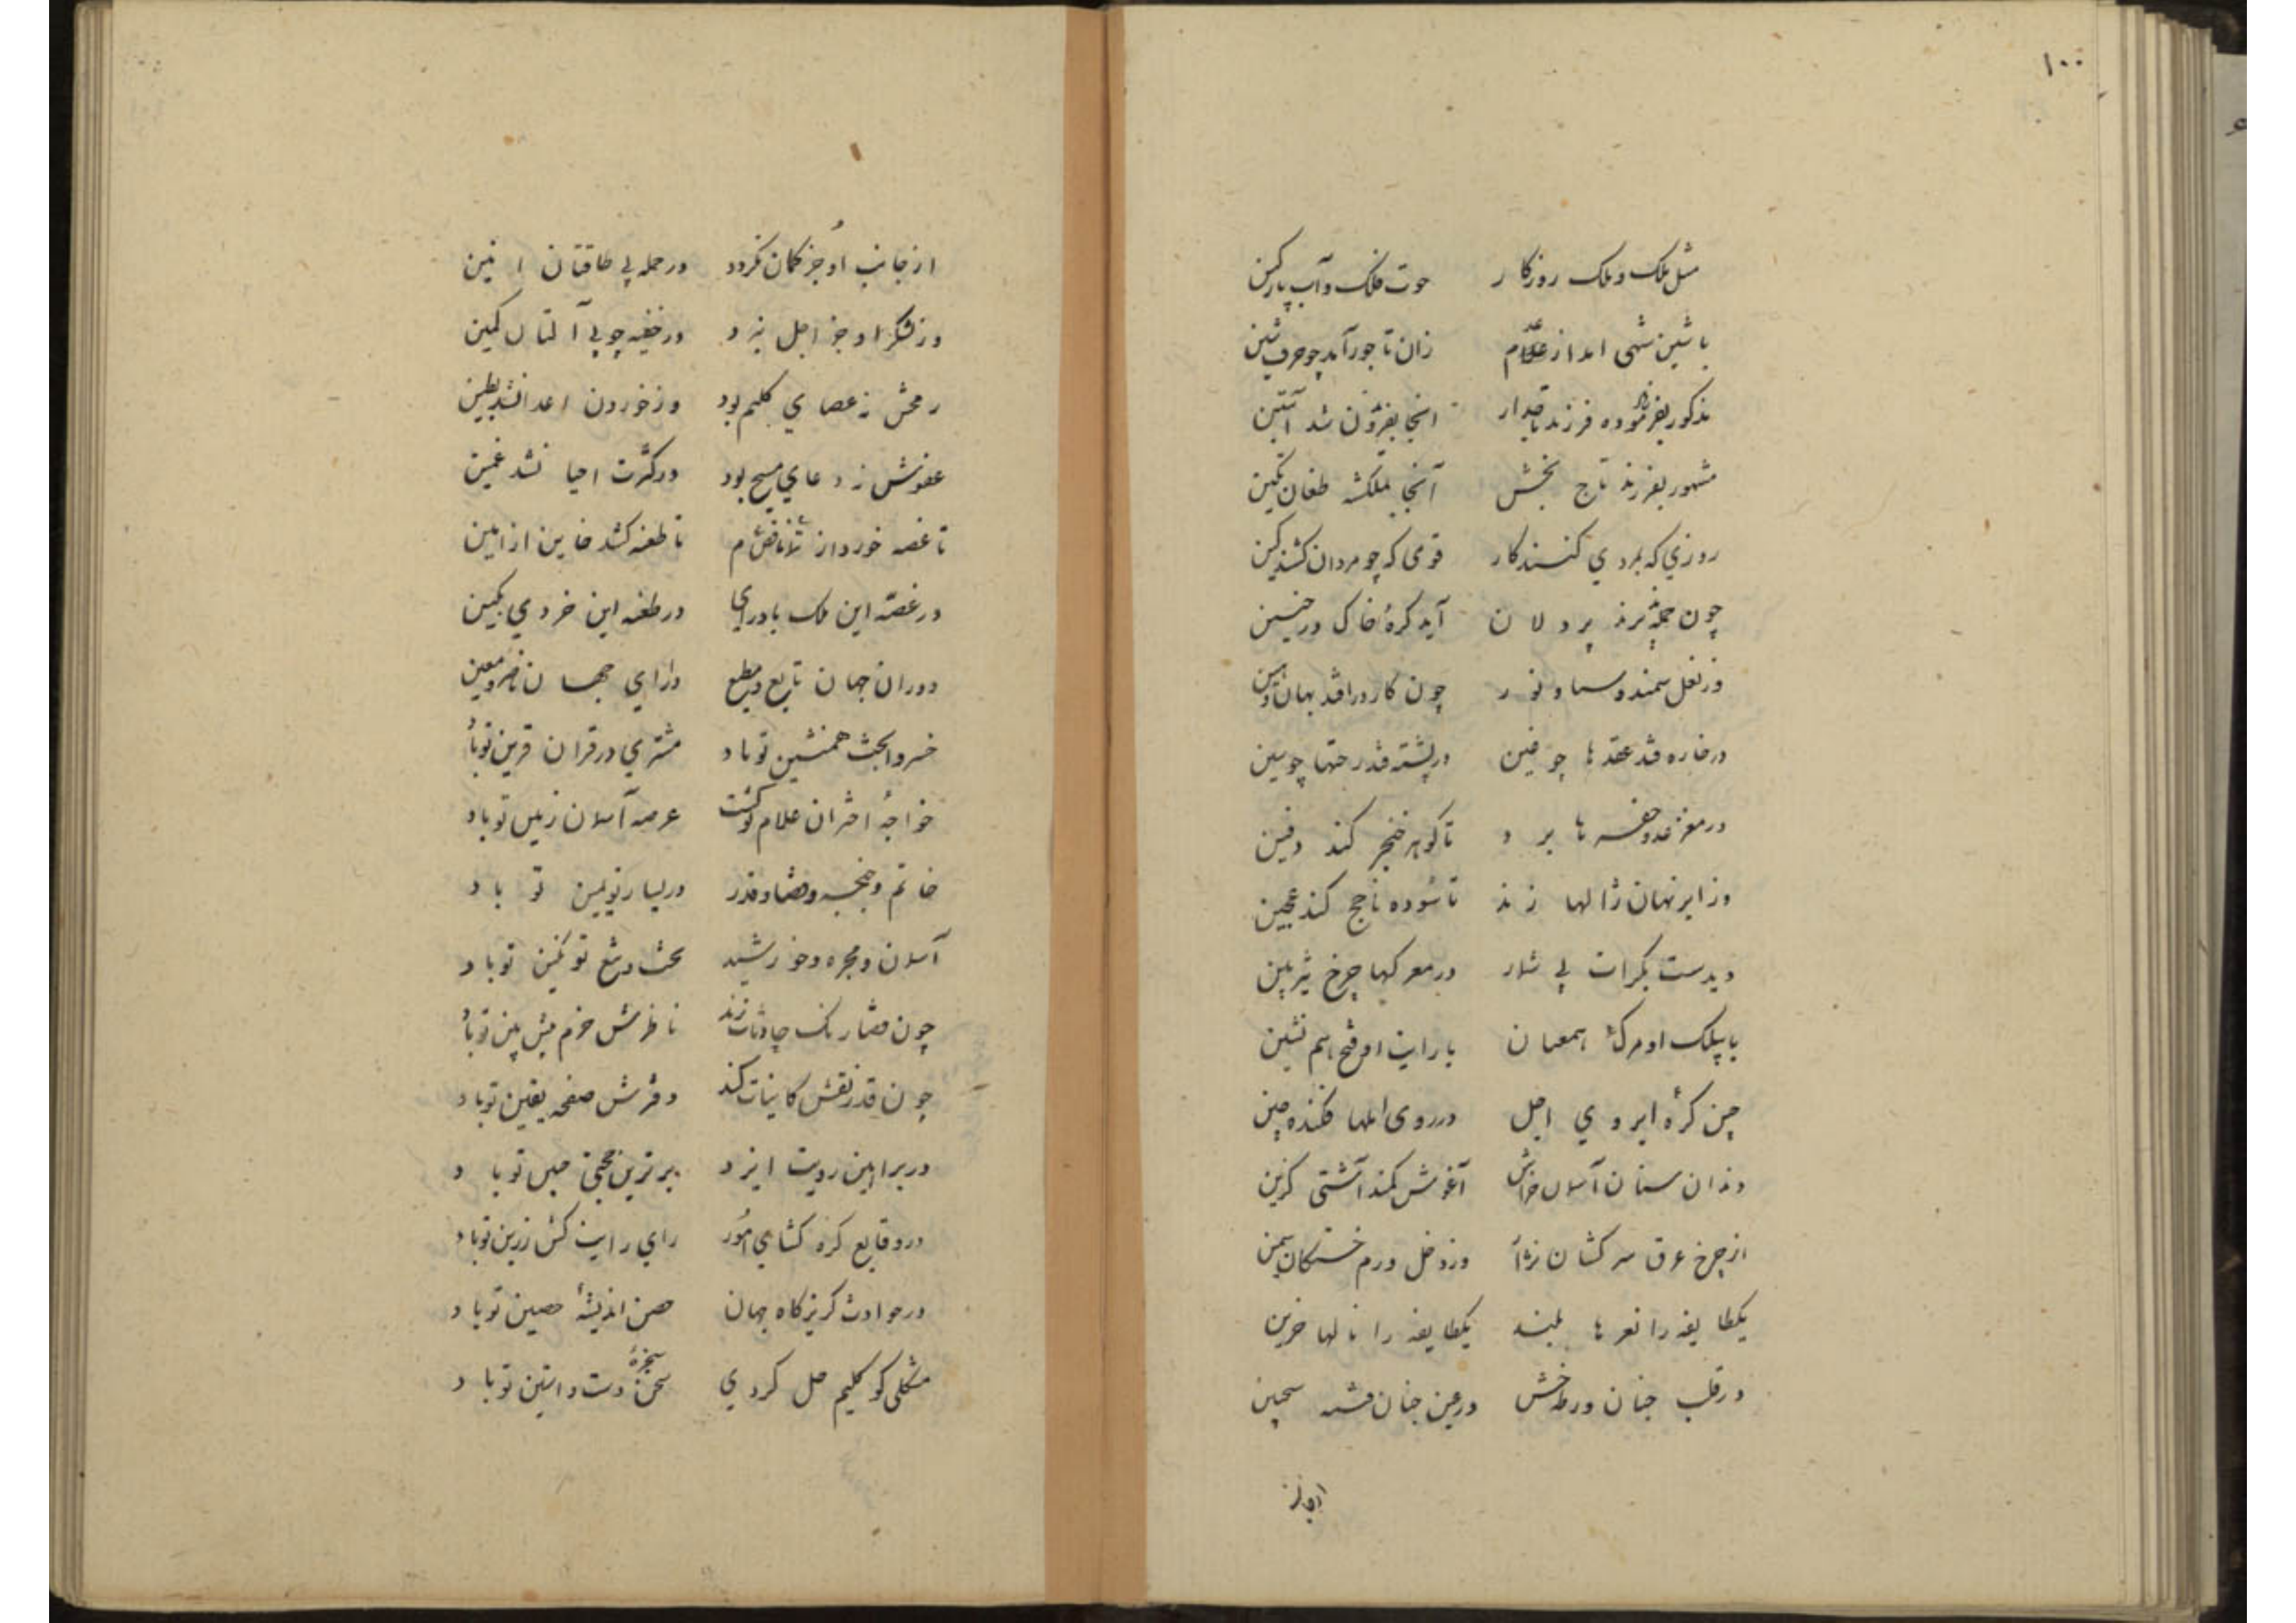 ۱۰۰
مثل ملک و ملک روزکار حوت فلک و آب پارکین
با شین شهی ابداز غلام زان تا جور آمد چو حرف شین
مذکور بفر فرزند تاجدار انجا بفزون شد آبتین
مشهور بفرزند تاج بخش آنجا بملکشه طغان تکین
روزی که بمردی کنند کار قومی که چو مردان کشند کین
چون حمله برند پردلان آید کرهٔ خاک در حنین
وز نعل سمند و سما و نور چون کار در افتد بهان و هین
در خاره فتد عقدها چو فین در پشته فتد رختها چو سین
در مغز عدو حفره ها برد تا کوهر خنجر کند دفین
وز ابر نهان ژالها زند تا سوده ناچخ کند عجین
دیدست بکرات بی شمار در معرکها چرخ تیزبین
با پیلک او مرک همعنان با رایت او فتح همنشین
چین کرهٔ ابروی اجل در روی املها فکنده چین
دندان سنان آسمان خراش آغوش کمند آشتی کزین
از چرخ عرق سرکشان نزار وز دخل ورم خستکان سمین
یکطایفه را نعرها بلند یکطایفه را نالها حزین
در قلب چنان ورطه خش در عین چنان فتنه سجین
از جانب
از جانب او جز کمان نکرد در حمله بی طاقتان انین
وز لشکر او جز اجل نبرد در خفیه چو بی آلتان کمین
رمحش نه عصای کلیم بود وز خوردن اعدا نشد بطین
عفوش نه دعای مسیح بود در کثرت احیا نشد غمین
تا غصه خورد از تمام تا طعنه کشد خاین از امین
در غصه این ملک بادرای در طعنه این خردی بکین
دوران جهان تابع و مطیع دارای جهان ناصر و معین
خسروا بخت همنشین تو باد مشتری در قران قرین تو باد
خواجهٔ اختران غلام تو کشت عرصه آسمان زمین تو باد
خاتم و خنجر و قضا و قدر در یسار تو و یمین تو باد
آسمان و مجره و خورشید تخت و تیغ تو نکین تو باد
چون قضا رنک حادثات زند ناظرش حزم پیش بین تو باد
چون قدر نقش کاینات کند دفترش صفحه یقین تو باد
در براهین رویت ایزد برترین حجتی مبین تو باد
در وقایع کره کشای امور رای رایت کش رزین تو باد
در حوادث کریزکاه جهان حصن اندیشهٔ حصین تو باد
مشکلی کو کلیم حل کردی سخره دست و استین تو باد